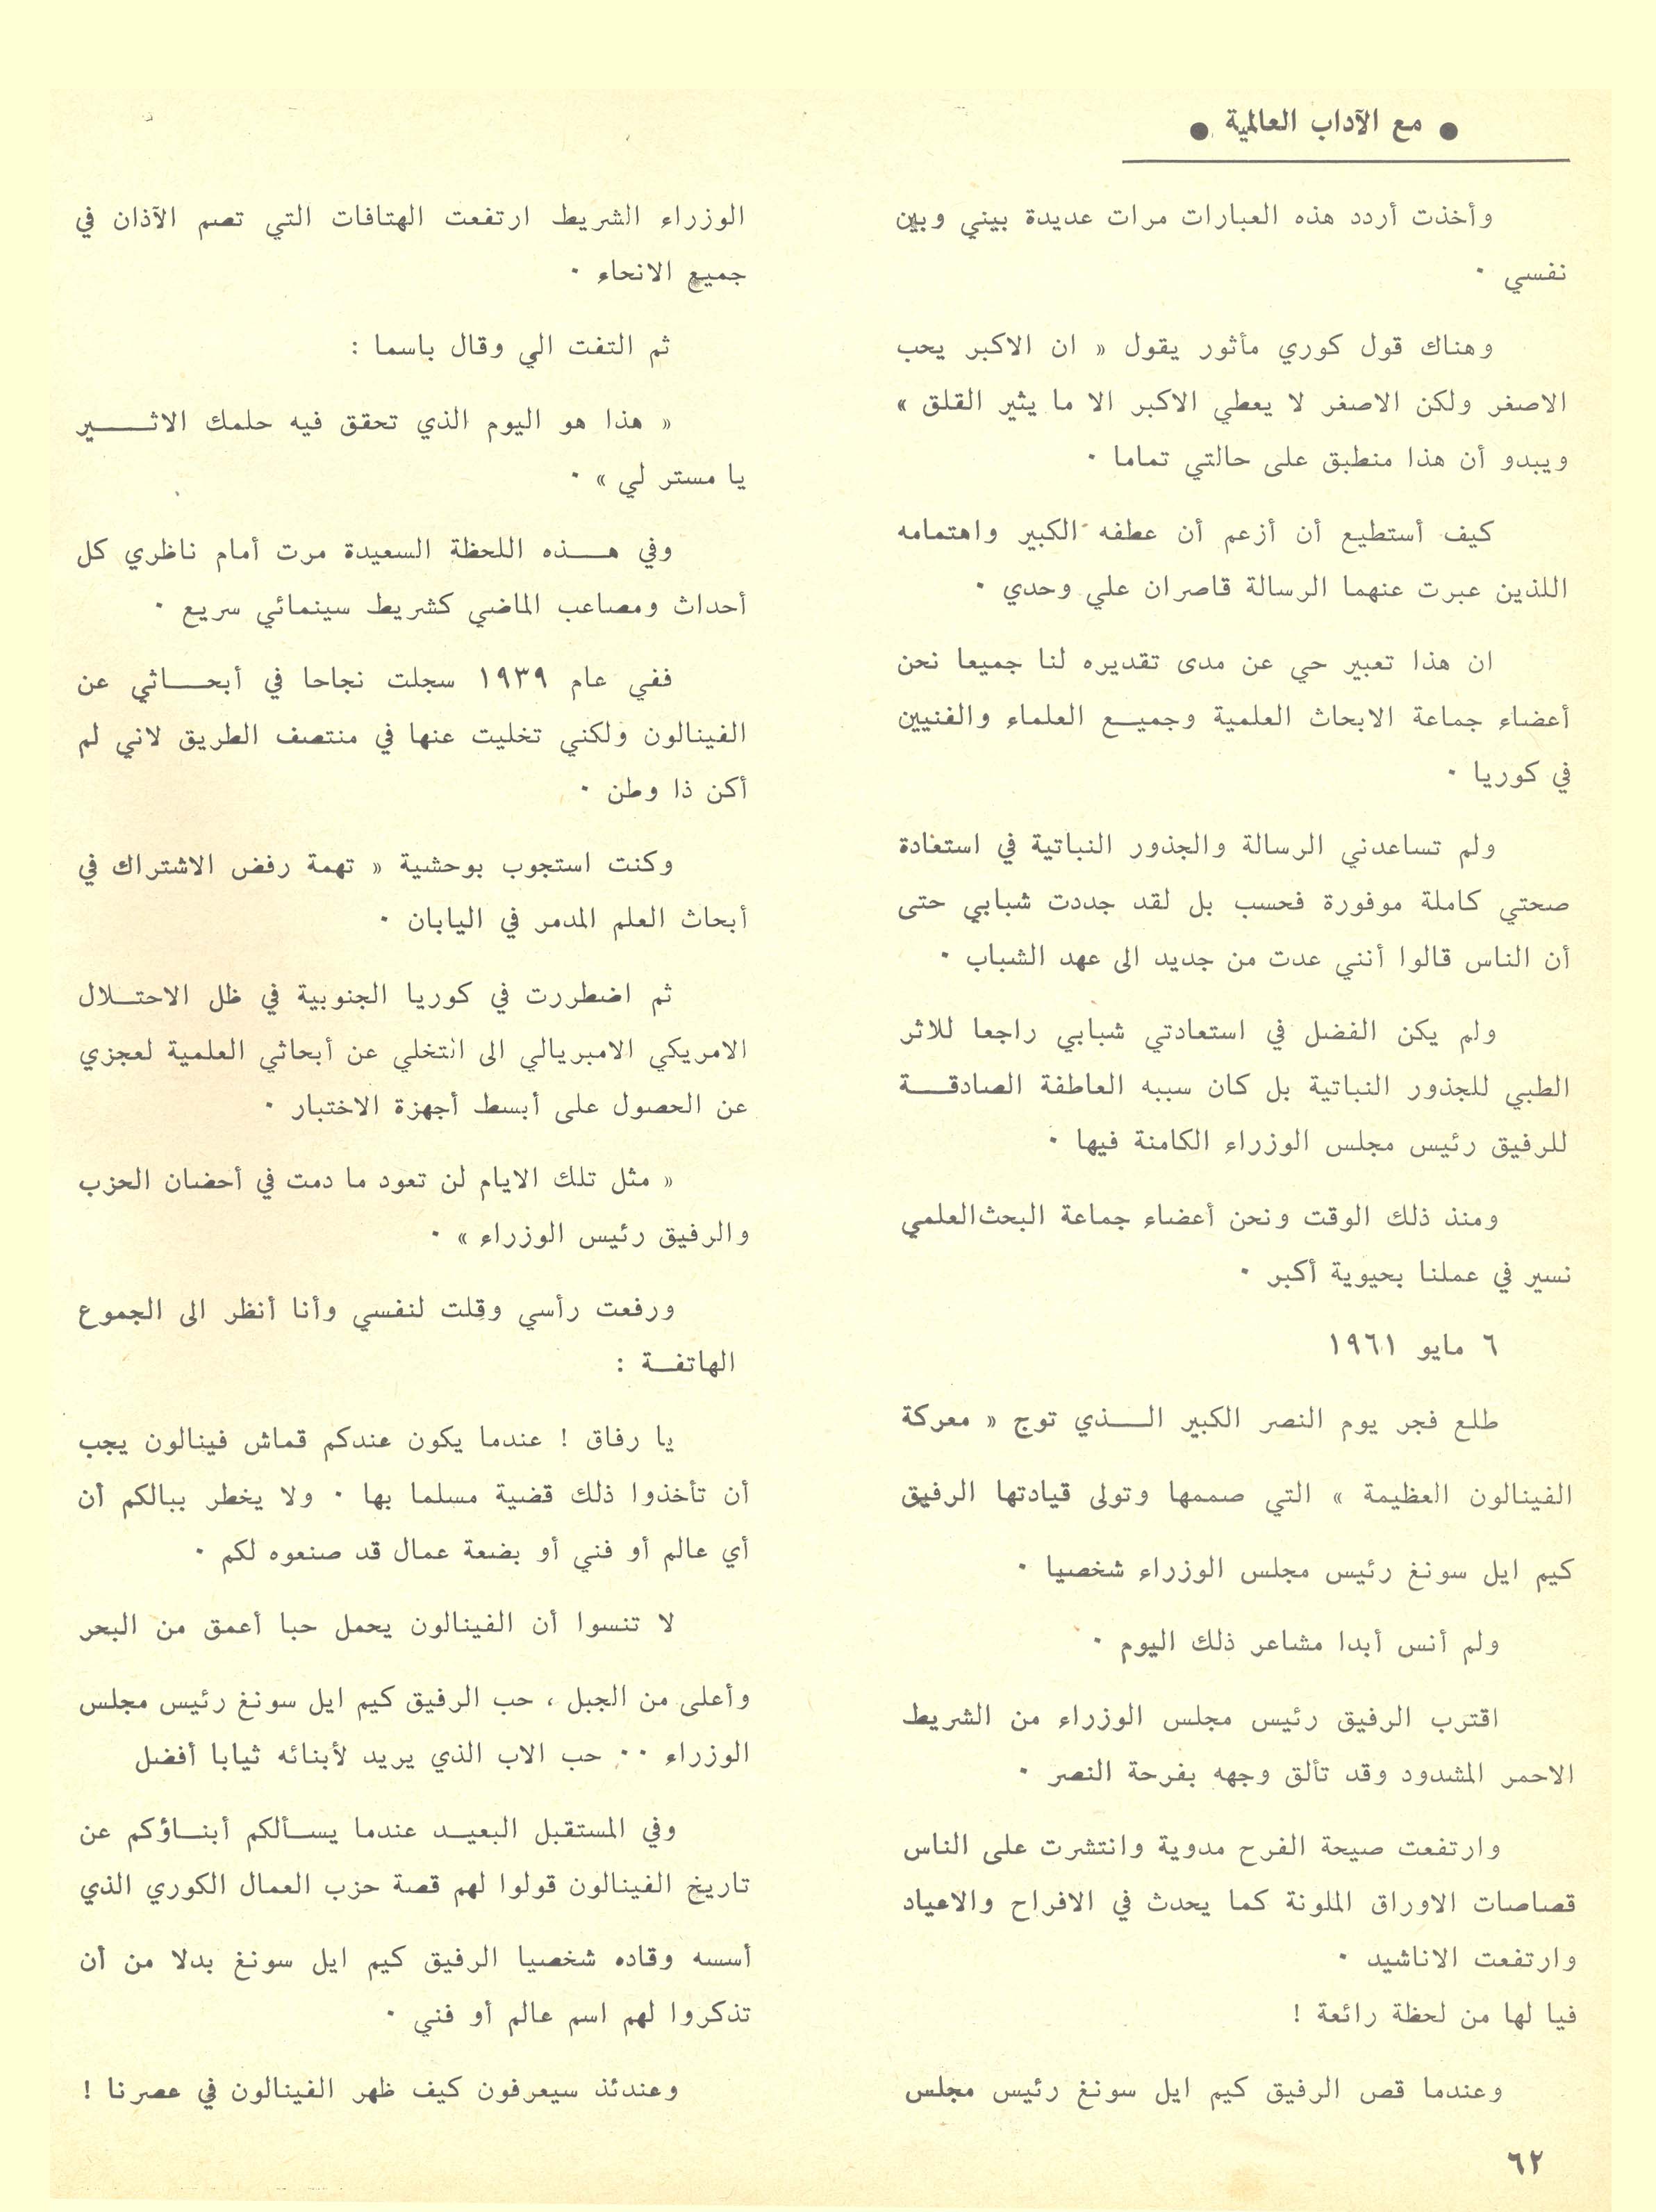 ● مع الآداب العالمية ●
وأخذت أردد هذه العبارات مرات عديدة بيني وبين
نفسي ٠
وهناك قول كوري مأثور يقول « ان الاكبر يحب
الاصغر ولكن الاصغر لا يعطي الاكبر الا ما يثير القلق »
ويبدو أن هذا منطبق على حالتي تماما ٠
كيف أستطيع أن أزعم أن عطفه الكبير واهتمامه
اللذين عبرت عنهما الرسالة قاصران علي وحدي ٠
ان هذا تعبير حي عن مدى تقديره لنا جميعا نحن
أعضاء جماعة الابحاث العلمية وجميع العلماء والفنيين
في كوريا ٠
ولم تساعدني الرسالة والجذور النباتية في استعادة
صحتي كاملة موفورة فحسب بل لقد جددت شبابي حتى
أن الناس قالوا أنني عدت من جديد الى عهد الشباب ٠
ولم يكن الفضل في استعادتي شبابي راجعا للاثر
الطبي للجذور النباتية بل كان سببه العاطفة الصادقة
للرفيق رئيس مجلس الوزراء الكامنة فيها ٠
ومنذ ذلك الوقت ونحن أعضاء جماعة البحث العلمي
نسير في عملنا بحيوية أكبر ٠
٦ مايو ١٩٦١
طلع فجر يوم النصر الكبير الذي توج « معركة
الفينالون العظيمة » التي صممها وتولى قيادتها الرفيق
كيم ايل سونغ رئيس مجلس الوزراء شخصيا ٠
ولم أنس أبدا مشاعر ذلك اليوم ٠
اقترب الرفيق رئيس مجلس الوزراء من الشريط
الاحمر المشدود وقد تألق وجهه بفرحة النصر ٠
وارتفعت صيحة الفرح مدوية وانتشرت على الناس
قصاصات الاوراق الملونة كما يحدث في الافراح والاعياد
وارتفعت الاناشيد ٠
فيا لها من لحظة رائعة !
وعندما قص الرفيق كيم ايل سونغ رئيس مجلس
الوزراء الشريط ارتفعت الهتافات التي تصم الآذان في
جميع الانحاء ٠
ثم التفت الي وقال باسما :
« هذا هو اليوم الذي تحقق فيه حلمك الاثير
يا مستر لي » ٠
وفي هذه اللحظة السعيدة مرت أمام ناظري كل
أحداث ومصاعب الماضي كشريط سينمائي سريع ٠
ففي عام ١٩٣٩ سجلت نجاحا في أبحاثي عن
الفينالون ولكني تخليت عنها في منتصف الطريق لاني لم
أكن ذا وطن ٠
وكنت استجوب بوحشية « تهمة رفض الاشتراك في
أبحاث العلم المدمر في اليابان ٠
ثم اضطررت في كوريا الجنوبية في ظل الاحتلال
الامريكي الامبريالي الى التخلي عن أبحاثي العلمية لعجزي
عن الحصول على أبسط أجهزة الاختبار ٠
« مثل تلك الايام لن تعود ما دمت في أحضان الحزب
والرفيق رئيس الوزراء » ٠
ورفعت رأسي وقلت لنفسي وأنا أنظر الى الجموع
الهاتفة :
يا رفاق ! عندما يكون عندكم قماش فينالون يجب
أن تأخذوا ذلك قضية مسلما بها ٠ ولا يخطر ببالكم أن
أي عالم أو فني أو بضعة عمال قد صنعوه لكم ٠
لا تنسوا أن الفينالون يحمل حبا أعمق من البحر
وأعلى من الجبل ، حب الرفيق كيم ايل سونغ رئيس مجلس
الوزراء ٠٠ حب الاب الذي يريد لأبنائه ثيابا أفضل
وفي المستقبل البعيد عندما يسألكم أبناؤكم عن
تاريخ الفينالون قولوا لهم قصة حزب العمال الكوري الذي
أسسه وقاده شخصيا الرفيق كيم ايل سونغ بدلا من أن
تذكروا لهم اسم عالم أو فني ٠
وعندئذ سيعرفون كيف ظهر الفينالون في عصرنا !
٦٢